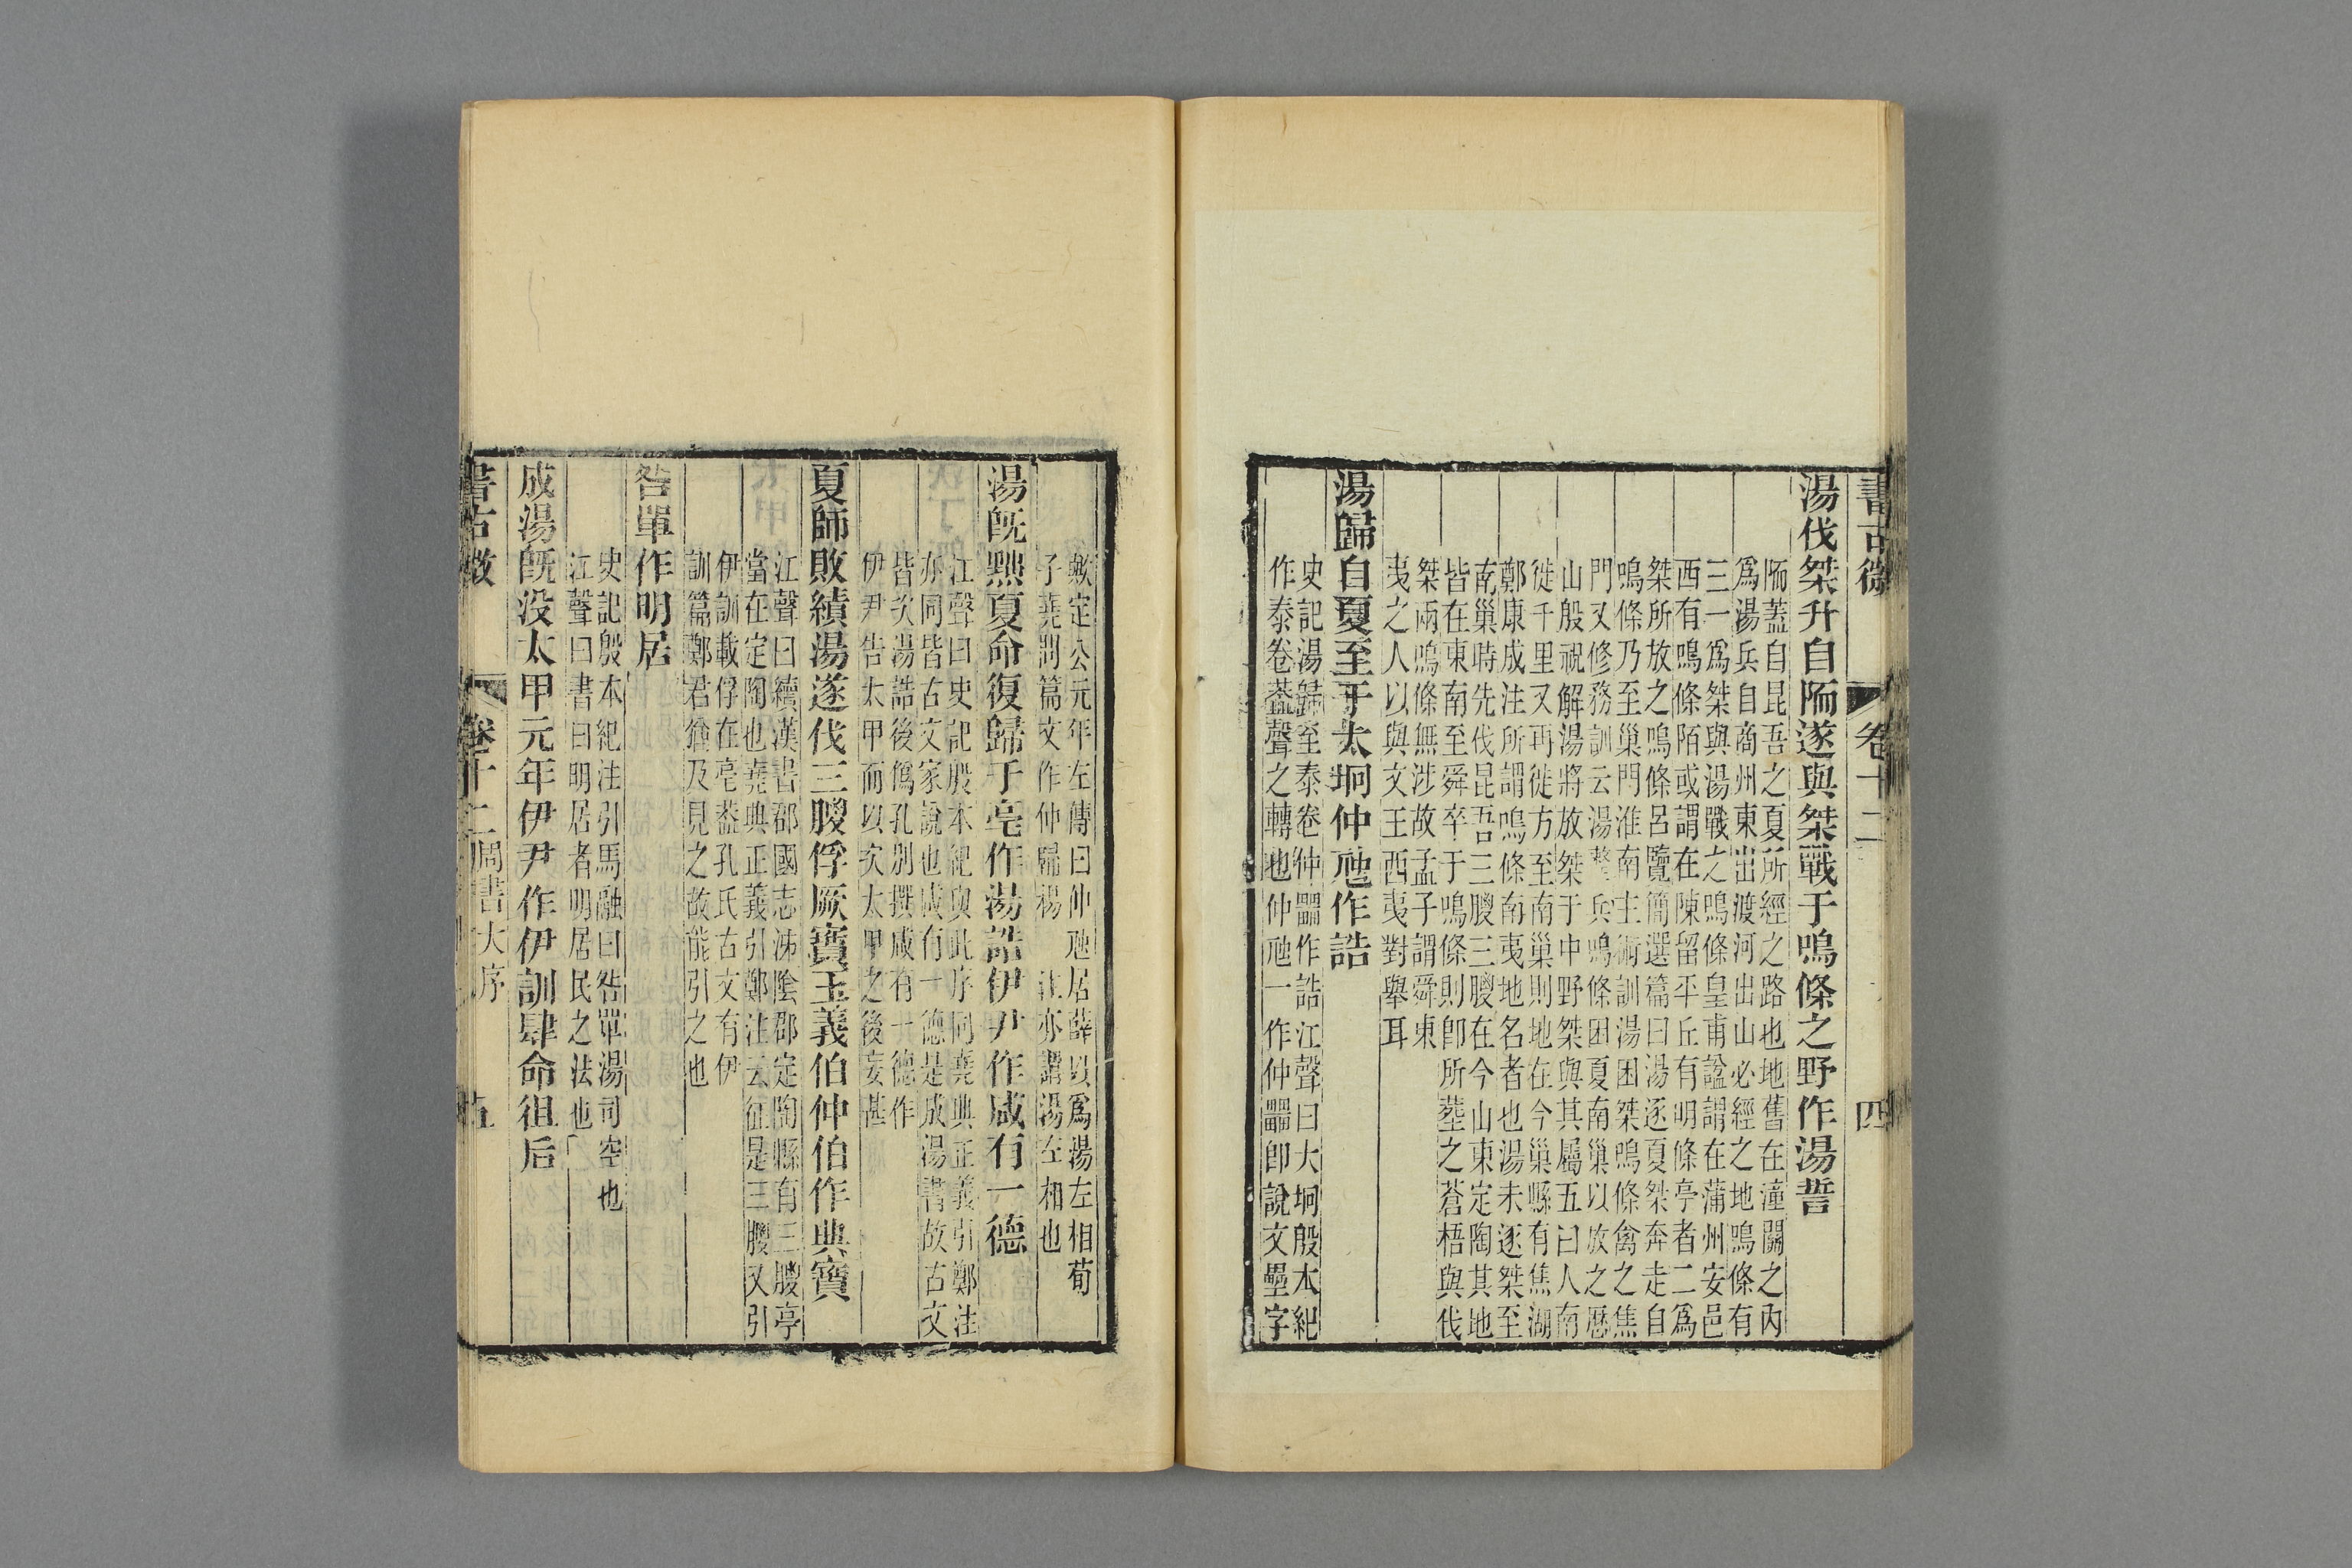 書古微 卷十二 四
湯伐桀升自陑遂與桀戰于鳴條之野作湯誓
陑蓋自昆吾之夏所經之路也地舊在潼關之內
爲湯兵自商州東出渡河出山必經之地鳴條有
三一爲桀與湯戰之鳴條皇甫謐謂在蒲州安邑
西有鳴條陌或謂在陳留平丘有明條亭者二爲
桀所放之鳴條呂覽簡選篇曰湯逐夏桀奔走自
鳴條乃至巢門淮南主術訓湯困桀鳴條禽之焦
門又修務訓云湯整兵鳴條困夏南巢以放之歷
山殷祝解湯將放桀于中野桀與其屬五曰人南
徙千里又再徙方至南巢則地在今巢縣有焦湖
鄭康成注所謂鳴條南夷地名者也湯未逐桀至
南巢時先伐昆吾三朡三朡在今山東定陶其地
皆在東南至舜卒于鳴條則卽所葬之蒼梧與伐
桀兩鳴條無涉故孟子謂舜東
夷之人以與文王西夷對舉耳
湯歸自夏至于大坰仲虺作誥
史記湯歸至泰卷仲䠠作誥江聲曰大坰殷本紀
作泰卷葢聲之轉也仲虺一作仲䠠卽說文壘字
歟定公元年左傳曰仲虺居薛以爲湯左相荀
子堯問篇文作仲䖒裼 注亦謂湯左相也
湯旣黜夏命復歸于亳作湯誥伊尹作咸有一德
江聲曰史記殷本紀與此序同堯典正義引鄭注
亦同皆古文家說也咸有一德是成湯書故古文
皆次湯誥後僞孔別撰咸有一德作
伊尹告太甲而以次太甲之後妄甚
夏師敗績湯遂伐三朡俘厥寶玉義伯仲伯作典寶
江聲曰續漢書郡國志泲陰郡定陶縣有三朡亭
當在定陶也堯典正義引鄭注云征是三朡又引
伊訓載俘在亳葢孔氏古文有伊
訓篇鄭君猶及見之故能引之也
咎單作明居
史記殷本紀注引馬融曰咎單湯司空也
江聲曰書曰明居者明居民之法也
成湯旣没太甲元年伊尹作伊訓肆命徂后
書古微 卷十二周書大序 五